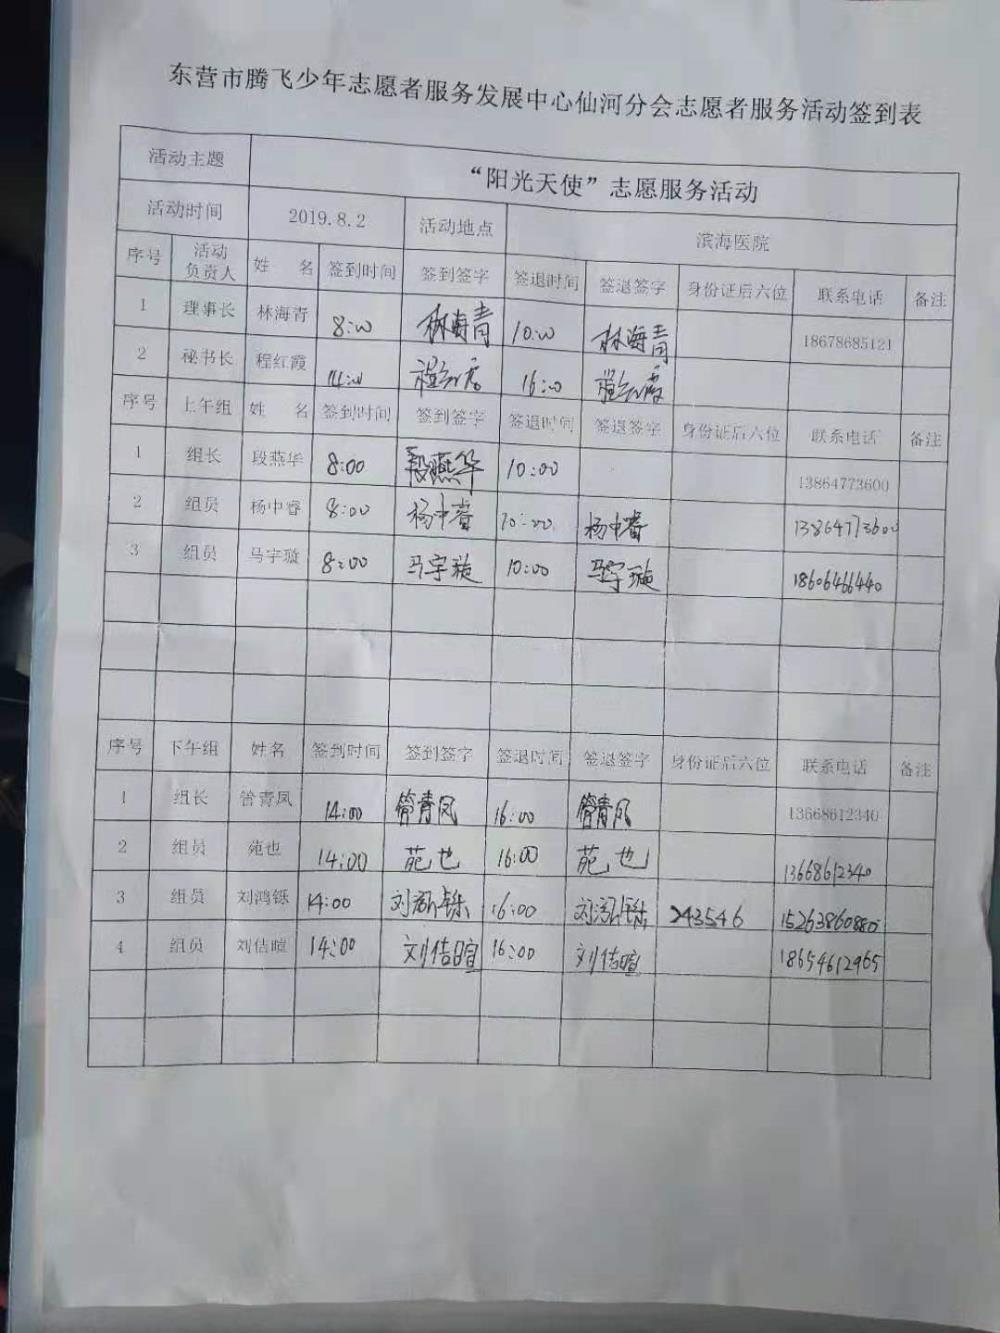 东营市腾飞少年志愿者服务发展中心仙河分会志愿者服务活动签到表
活动主题 “阳光天使”志愿服务活动
活动时间 2019.8.2 活动地点 滨海医院
序号 活动负责人 姓 名 签到时间 签到签字 签退时间 签退签字 身份证后六位 联系电话 备注
1 理事长 林海青 8:00 林海青 10:00 林海青 18678685121
2 秘书长 程红霞 14:00 程红霞 16:00 程红霞
序号 上午组 姓 名 签到时间 签到签字 签退时间 签退签字 身份证后六位 联系电话 备注
1 组长 段燕华 8:00 段燕华 10:00 13864773600
2 组员 杨中睿 8:00 杨中睿 10:00 杨中睿 13864773600
3 组员 马宇璇 8:00 马宇璇 10:00 马宇璇 18606466440
序号 下午组 姓名 签到时间 签到签字 签退时间 签退签字 身份证后六位 联系电话 备注
1 组长 管青凤 14:00 管青凤 16:00 管青凤 13668612340
2 组员 苑也 14:00 苑也 16:00 苑也 13668612340
3 组员 刘鸿铄 14:00 刘鸿铄 16:00 刘鸿铄 243546 15263860880
4 组员 刘佶暄 14:00 刘佶暄 16:00 刘佶暄 18654612965